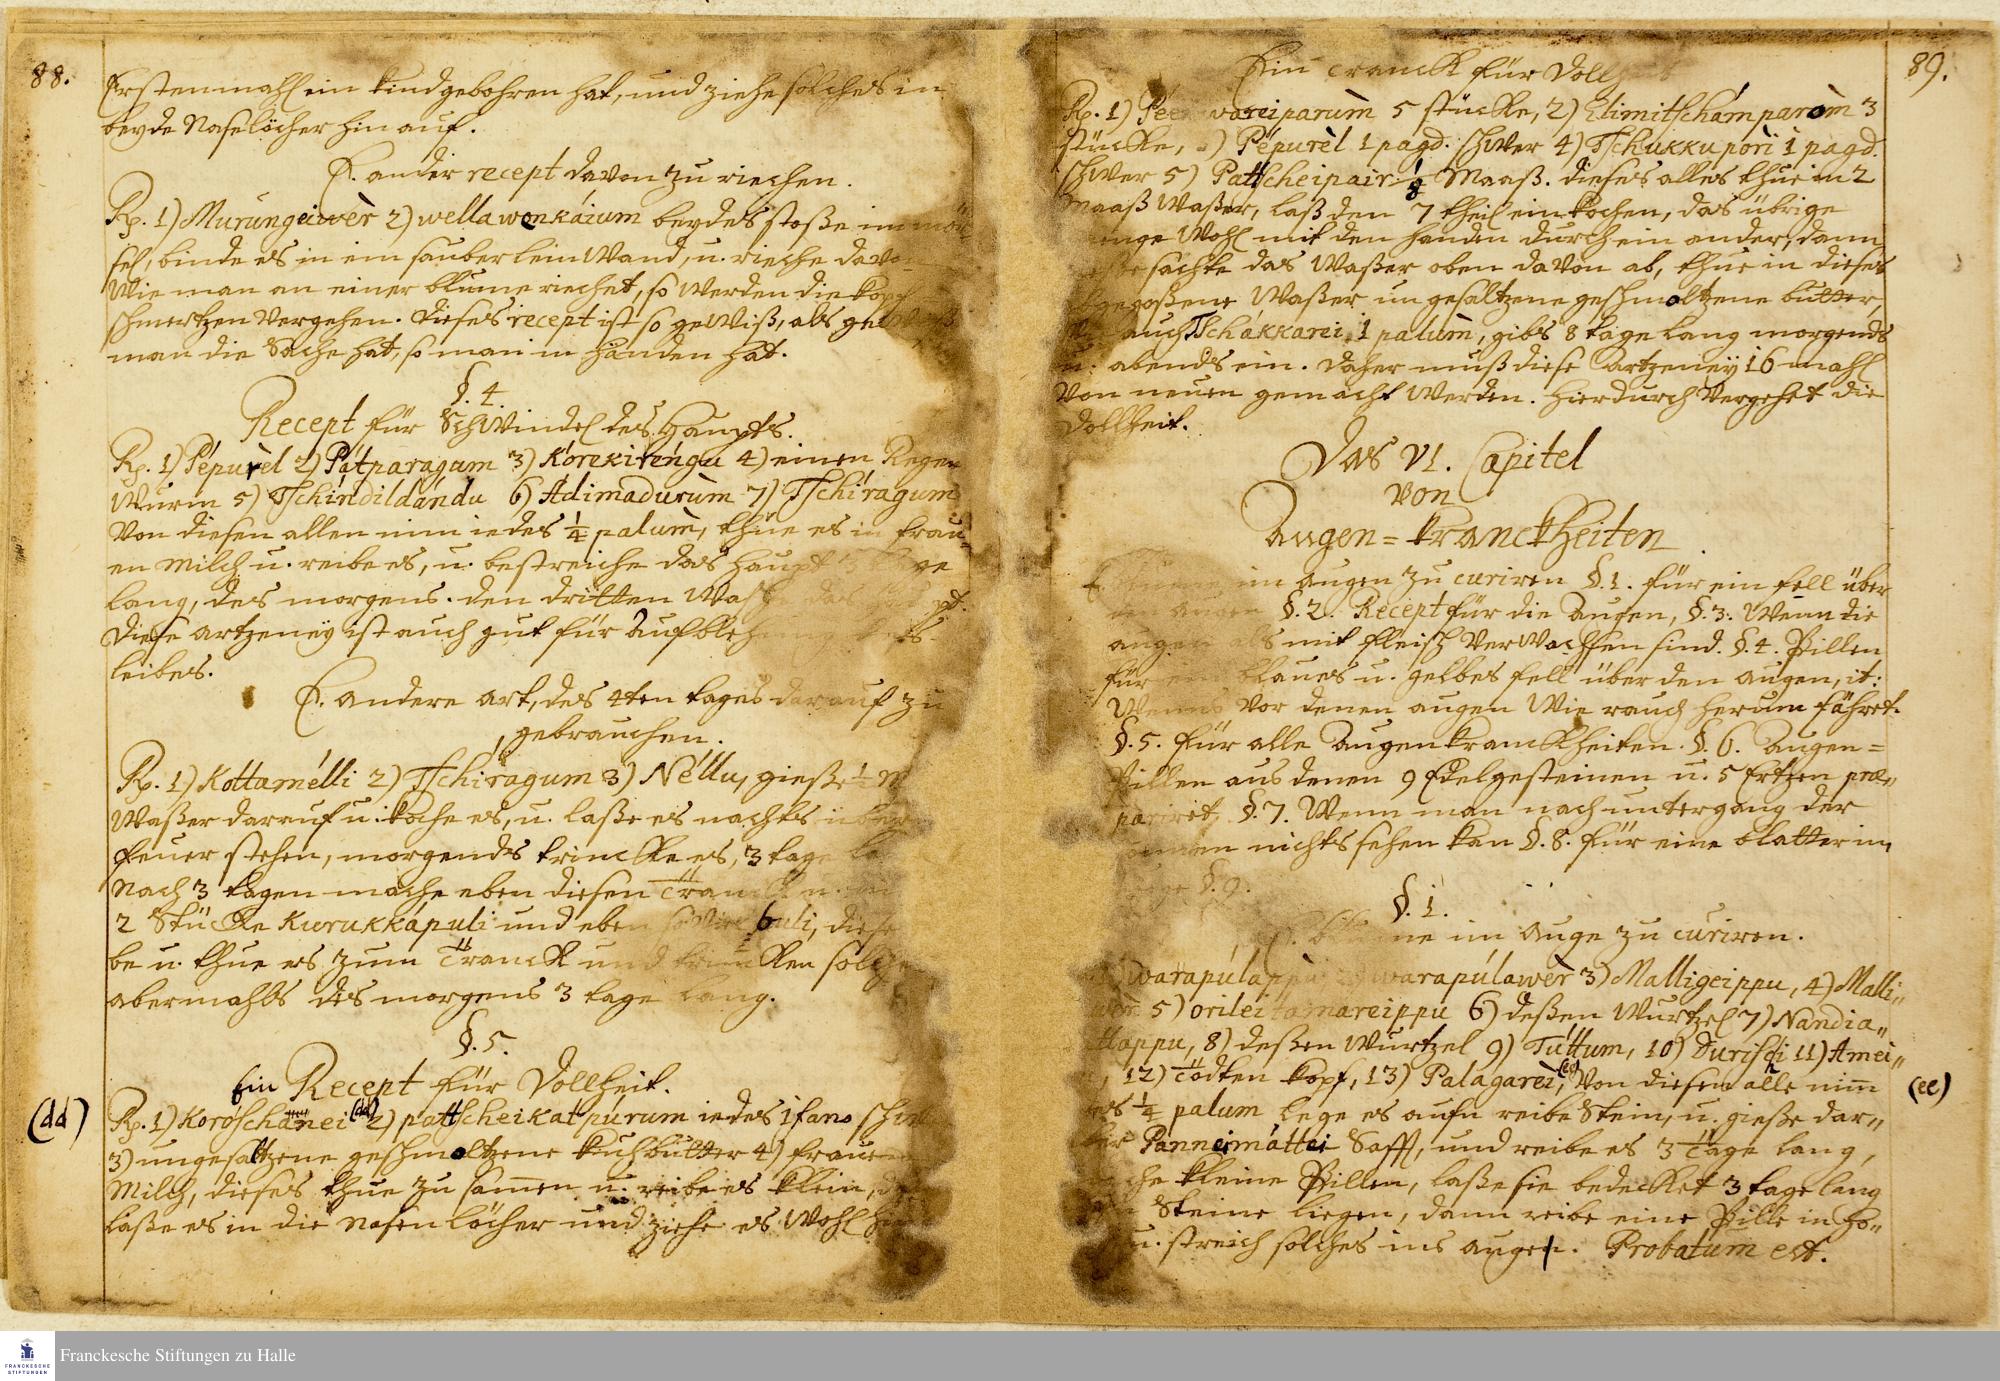 88.
Erstenmahl ein kind gebohren hat, und ziehe solches in
beyde Naselöcher hin auf.
E. ander recept davon zu riechen.
Rp. 1) Murungeiwèr 2) wellawonkáium beydes stoße im
sel, binde es in ein sauber leinWand, u. rieche davo-
Wie man an einer blume riechet, so werden die kopf
schmertzen vergehen. Dieses recept ist so gewiß, als
man die Sache hat, so man in händen hat.
§. 4.
Recept für Schwindel des Haupts.
Rp. 1) Pépurèl 2) Pátparagum 3) Kórekiréngu 4) einen Regen
Wurm 5) Tschíndildándu 6) Adimadurùm 7) Tschíragum
Von diesen allen nim iedes 1/4 palum, thue es in frau-
en Milch u. reibe es, u. bestreiche das Haupt 3 tage
lang, des morgens. den dritten
Diese artzeney ist auch gut für Aufbleh
leibes.
E. andere art, des 4ten tages darauf zu
gebrauchen.
Rp. 1) Kottamélli 2) Tschíragum 3) Néllu, gieße 1/2 M
Waßer darauf u. koche es, u. laße es nachts über
feuer stehen, morgends trincke es, 3 tage
Nach 3 tagen mache eben diesen Tranck
2 Stücke Kurukkápuli und eben so viel puli, diese
be u. thue es zum Tranck und trincken solche
abermahls des morgens 3 tage lang.
§. 5.
Ein Recept für Dollheit.
(dd) Rp. 1) Koróschánei (dd) 2) pattscheikatpúrum iedes 1 fano schw
3) ungesaltzene geschmoltzene kuhbutter 4) frauen
Milch, dieses thue zu samen u. reibe es klein,
laße es in die nasen löcher und ziehe es Wohl
89.
Ein Tranck für Doll
Rp. 1) voreiparum 5 stücke, 2) Elimitschámparòm 3
stücke, 3) Pépurèl 1 pagd. schwer 4) Tschukkupòri 1 pagd.
schwer 5) Pattscheipair 1/8 Maaß. dieses alles thue in 2
Maaß Waßer, laß den 7 theil ein kochen, das übrige
menge Wohl mit den handen durch ein ander, dann
sachte das Waßer oben davon ab, thue in dieses
abgegoßene Waßer ungesaltzene geschmoltzene butter,
auch Tschákkarei 1 palùm, gibs 8 tage lang morgends
u. abends ein. Daher muß diese Artzeney 16 mahl
Von neuen gemacht werden. Hierdurch vergehet die
Dollheit.
Das VI. Capitel
von
Augen=kranckheiten
im augen zu curiren §. 1. für ein fell über
den augen §. 2. Recept für die Augen, §. 3. Wenn die
augen als mit fleisch verwachsen sind. §. 4. Pillen
für ein blaues u. gelbes fell über den augen, it:
Wenns vor denen augen wie rauch herum fähret.
§. 5. für alle Augen kranckheiten. §. 6. Augen=
Pillen aus denen 9 Edelgesteinen u. 5 Ertzen præ-
pariret, §. 7. Wenn man nach untergang der
Sonnen nichts sehen kan §. 8. für eine blatter im
auge §. 9.
§. 1.
E. blume im Auge zu curiren.
1) warapúlappu 2) warapúlawèr 3) Malligeippu, 4) Malli-
wèr 5) orileitamareippu 6) deßen Wurtzel 7) Nandia-
ttappu, 8) deßen Wurtzel 9) Túttum, 10) Durischi 11) Amei-
12) Todten kopf, 13) Palagarei, (ee) Von diesen alle nim
(ee)
es 1/4 palum lege es aufn reibe Stein, u. gieße dar-
Panneimáttei Safft, und reibe es 3 Tage lang,
mache kleine Pillen, laße sie bedecket 3 tage lang
Steine liegen, dann reibe eine Pille in Ho-
u. streich solches ins auge. Probatum est.
FRANCKESCHE
STIFTUNGEN
Franckesche Stiftungen zu Halle